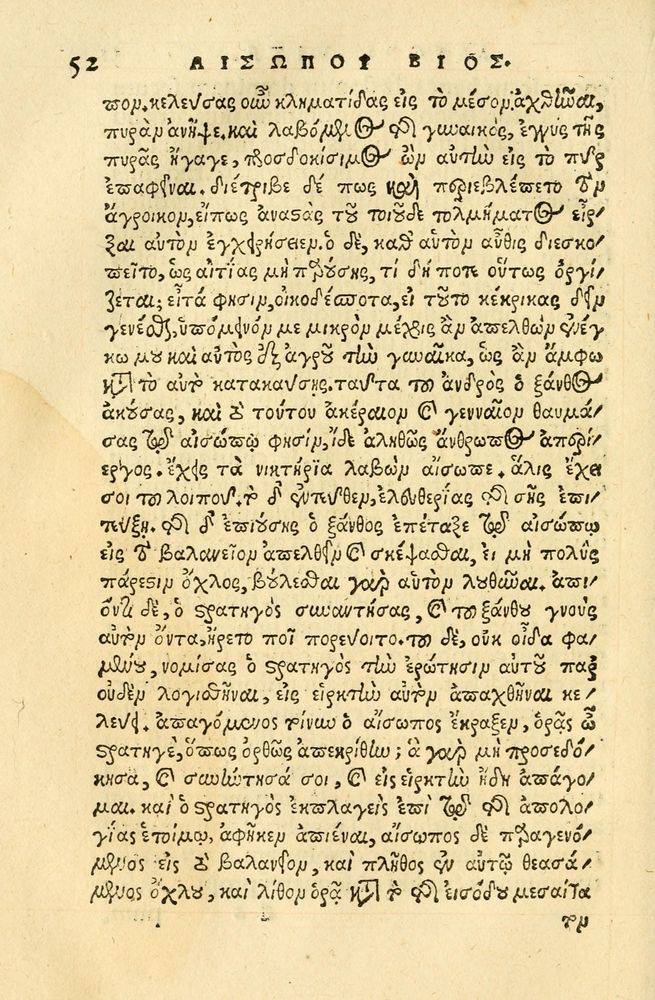 52 ΑΙΣΩΠΟΥ ΒΙΟΣ.
πον. κελεύσας οὖν κληματίδας εἰς τὸ μέσον ἀχθῆναι,
πυρὰν ἀνῆψε. καὶ λαβόμενος τῆς γυναικός, ἐγγὺς τῆς
πυρᾶς ἤγαγε, προσδοκίσιμος ὢν αὐτὴν εἰς τὸ πῦρ
ἐπαφεῖναι. διέτριβε δέ πως καὶ περιεβλέπετο τὸν
ἄγροικον, εἴπως ἀναστὰς τοῦ τοιοῦδε τολμήματος εἶρ/
ξαι αὐτὸν ἐγχειρήσειεν. ὁ δὲ, καθ' αὑτὸν αὖθις διεσκο/
πεῖτο, ὡς αἰτίας μὴ παρούσης, τί δήποτε οὕτως ὀργί/
ζεται; εἶτά φησιν, οἰκοδέσποτα, εἰ τοῦτο κέκρικας δεῖν
γενέσθαι, ὑπόμεινόν με μικρὸν μέχρις ἂν ἀπελθὼν ἐνέγ
κω μου καὶ αὐτὸς ἐξ ἀγροῦ τὴν γυναῖκα, ὡς ἂν ἄμφω
κατὰ τὸ αὐτὸ κατακαύσῃς. ταῦτα τοῦ ἀνδρὸς ὁ ξάνθος
ἀκούσας, καὶ τὸ τούτου ἀκέραιον καὶ γενναῖον θαυμά/
σας τῷ αἰσώπῳ φησίν, ἴδε ἀληθῶς ἄνθρωπος ἀπερί/
εργος. ἔχεις τὰ νικητήρια λαβὼν αἴσωπε. ἅλις ἔχει
σοι τοῦ λοιποῦ. τὸ δ' ἐντεῦθεν, ἐλευθερίας τῆς σῆς ἐπι/
τεύξῃ. τῇ δ' ἐπιούσῃ ὁ ξάνθος ἐπέταξε τῷ αἰσώπῳ
εἰς τὸ βαλανεῖον ἀπελθεῖν καὶ σκέψασθαι, εἰ μὴ πολὺς
πάρεστιν ὄχλος, βούλεσθαι γὰρ αὐτὸν λουθῆναι. ἀπι/
όντι δὲ, ὁ στρατηγὸς συναντήσας, καὶ τοῦ ξάνθου γνοὺς
αὐτὸν ὄντα, ἤρετο ποῖ πορεύοιτο. τοῦ δὲ, οὐκ οἶδα φα/
μένου, νομίσας ὁ στρατηγὸς τὴν ἐρώτησιν αὐτοῦ παρ'
οὐδὲν λογισθῆναι, εἰς εἱρκτὴν αὐτὸν ἀπαχθῆναι κε/
λεύει. ἀπαγόμενος τοίνυν ὁ αἴσωπος ἔκραξεν, ὁρᾷς ὦ
στρατηγὲ, ὅπως ὀρθῶς ἀπεκρίθην; ἃ γὰρ μὴ προσεδό/
κησα, καὶ συνήντησά σοι, καὶ εἰς εἱρκτὴν ἤδη ἀπάγο/
μαι. καὶ ὁ στρατηγὸς ἐκπλαγεὶς ἐπὶ τῷ τῆς ἀπολο/
γίας ἑτοίμῳ, ἀφῆκεν ἀπιέναι, αἴσωπος δὲ παραγενό/
μενος εἰς τὸ βαλανεῖον, καὶ πλῆθος ἐν αὐτῷ θεασά/
μενος ὄχλου, καὶ λίθον ὁρᾷ κατὰ τὸ τῆς εἰσόδου μεσαίτα
τον